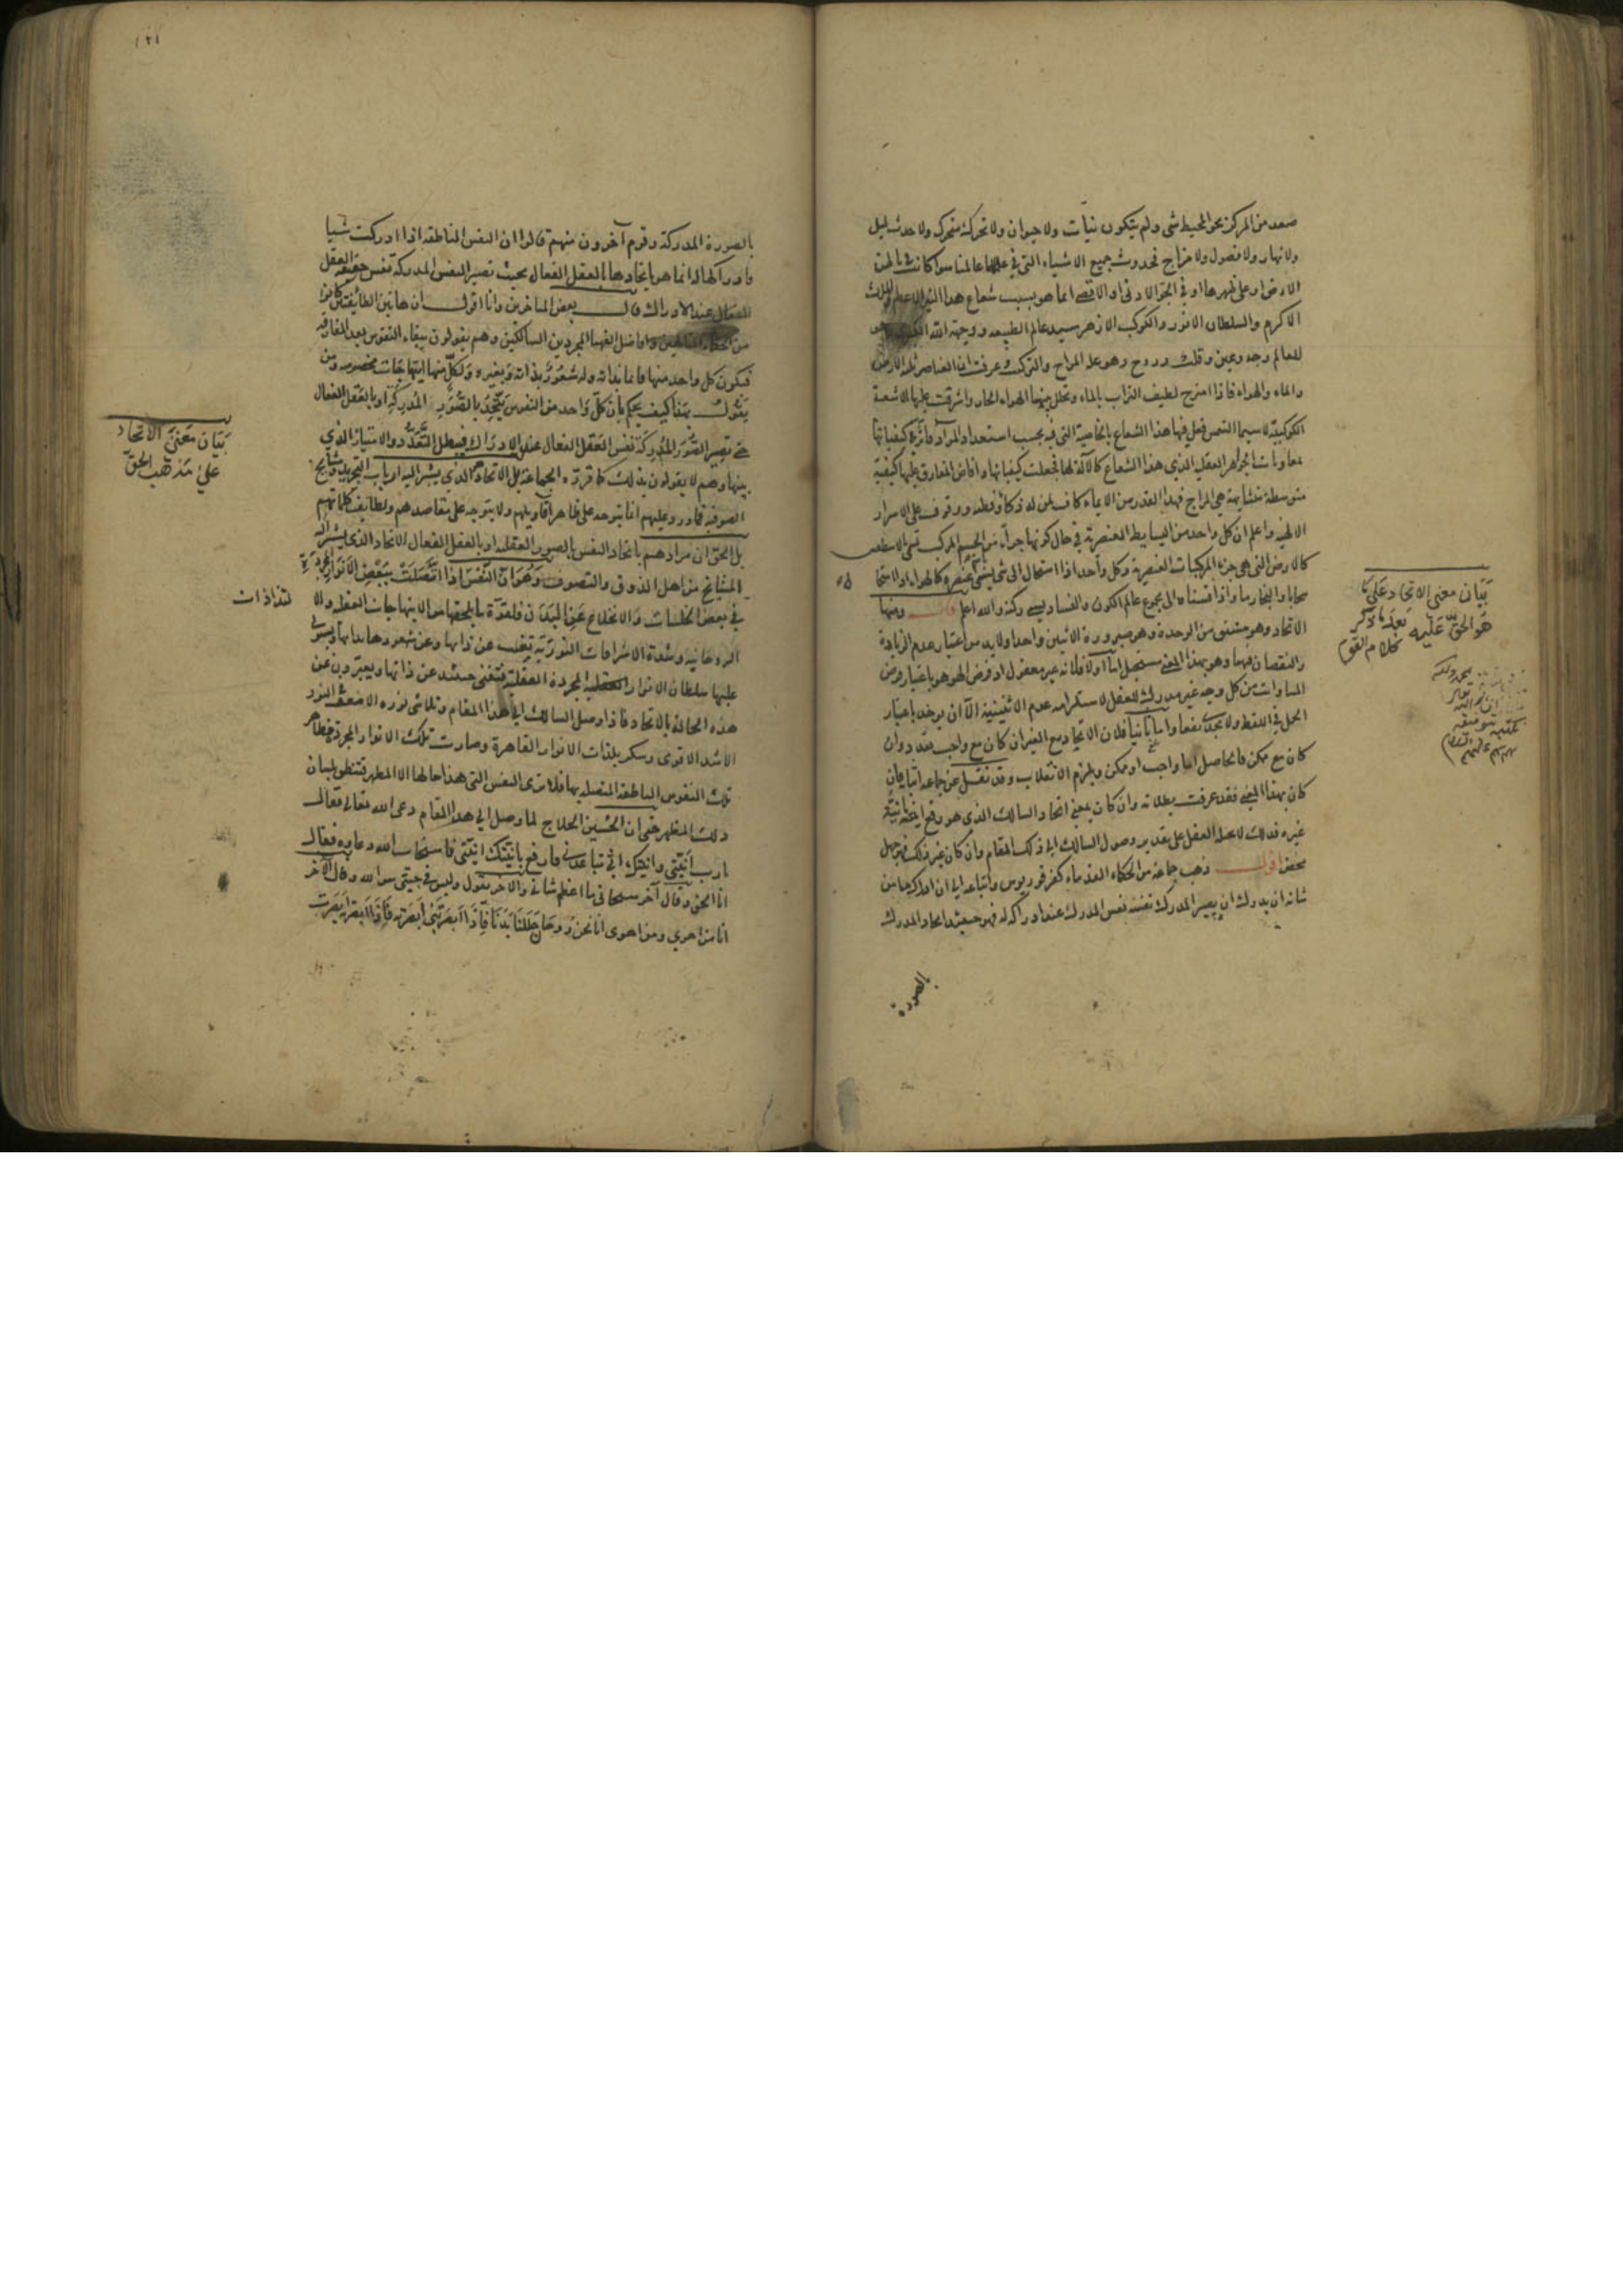 صعد من المركز نحو المحيط شى ولم يتكون نبات ولا حيوان ولا تحرك متحرك ولا حدث ليل
ولا نهار ولا فصول ولا مزاج فحدوث جميع الاشياء التى في عالمنا سوا كانت في باطن
الارض او على ظهرها او في الجو الادنى او الاقصى انما هو بسبب شعاع هذا النير الاعظم
الاكرم والسلطان الانور والكوكب الازهر سيد عالم الطبيعه ووجهة الله
للعالم وجه وعين وقلب وروح وهو علة المزاج والتركيب وعرفت ان العناصر ثلثة الارض
والماء والهواء فاذا امتزج لطيف التراب بالماء وتخلل بينهما الهواء الحار واشرقت عليها الاشعة
الكوكبية لا سيما الشمس فعل فيها هذا الشعاع بالخاصية التى فيه بحسب استعداد المواد
الجواهر العقلية الذي هذا الشعاع كالآلة لها فجعلت كيفياتها وافاض المفارق عليها كيفية
متوسطة متشابهة هي المزاج فهذا القدر من الايماء كاف لمن له ذكاء وفطنه ووقوف على الاسرار
الالهية واعلم ان كل واحد من البسايط العنصرية في حال كونها جزأ من الجسم المركب تسمى
كالارض التى هي جزء المركبات العنصرية وكل واحد اذا استحال الى شى يسمى عنصره كالهواء اذا استحال
سحابا والبخار ما واذا قسناه الى مجموع عالم الكون والفساد يسمى ركنه والله اعلم ومنها
الاتحاد وهو مشتق من الوحدة وهو صيرورة الاثنين واحدا ولا بد من اعتبار عدم الزيادة
والنقصان فيهما وهو بهذا المعنى مستحيل اما اولا فلانه غير معقول اذ فرض الهو هو باعتبار فرض
المساواة من كل وجه غير مدرك للعقل لاستلزامه عدم الاثنينية الا ان يوخذ باعتبار
الحمل في اللفظ ولا يجدى نفعا واما ثانيا فلان الاتحاد مع الغير ان كان مع واجب تعدد وان
كان مع ممكن فالحاصل اما واجب او ممكن ويلزم الانقلاب وقد نقل عن جماعة
كان بهذا المعنى فقد عرفت بطلانه وان كان بمعنى اتحاد السالك الذي هو رفع انيته بانية
غيره فذلك لا يحيله العقل على تقدير وصول السالك الى ذلك المقام وان كان غير ذلك فهو جهل
محض اقول ذهب جماعة من الحكماء القدماء كفرفوريوس واتباعه الى ان ادراك ما من
شانه ان يدرك ان يصير المدرك نفسه نفس المدرك عند ادراكه له فهو حينئذ اتحاد المدرك
بالصورة
بيان معنى الاتحاد على ما
هو الحق عليه بعد ما ذكر
كلام القوم
بالصورة المدركة وقوم آخرون منهم قالوا ان النفس الناطقه اذا ادركت شيا
فادراكها له انما هو باتحادها بالعقل الفعال بحيث تصير النفس المدركة نفس حقيقة العقل
الفعال عند الادراك قال بعض المتاخرين وانا اقول ان هاتين الطايفتين
من الحكماء واوافضل الفهما المجردين السالكين وهم يقولون ببقاء النفوس بعد المفارقه
فيكون كل واحد منها قائما بذاته وله شعور بذاته وبغيره ولكل منها ابتهاجات مخصوصه ومن
يقول بهذا كيف يحكم بان كل واحد من النفوس يتحد بالصور المدركة او بالعقل الفعال
حتى تصير الصور المدركة نفس العقل الفعال عند الادراك فيبطل التعدد والامتياز الذي
بينها وهم لا يقولون بذلك كما قرره الجماعة بل الاتحاد الذي يشير اليه ارباب التجريد ومشايخ
الصوفية فما ورد عليهم انما يتوجه على ظاهر اقاويلهم ولا يتوجه على مقاصدهم ولطايف كلماتهم
بل الحق ان مرادهم باتحاد النفس بالصور العقلية او بالعقل الفعال الاتحاد الذي يشير اليه
المشايخ من اهل الذوق والتصوف وهو ان النفس اذا اتصلت ببعض الانوار المجردة
في بعض الخلسات والانخلاع عن البدن فلقوة ما يلحقها من الابتهاجات العقلية والا
لتذاذات
الروحانية وشدة الاشراقات النورية تغيب عن ذاتها وعن شعورها بذاتها ويستولى
عليها سلطان الانوار المجردة العقلية فتفنى حينئذ عن ذاتها ويعبرون عن
هذه الحالة بالاتحاد فاذا وصل السالك الى هذا المقام وتلاشى نوره الاضعف النور
الاشد الاقوى وسكر بلذات الانوار القاهرة وصارت تلك الانوار المجردة مظاهر
تلك النفوس الناطقة المتصله بها فلا ترى النفس التى هذا حالها الا المظهر فتنطق بلسان
ذلك المظهر حتى ان الحسين الحلاج لما وصل الى هذا المقام دعى الله تعالى فقال
يارب انيتى وانيتك فارفع بانيتك انيتى فاستجاب الله دعاوه فقال
انا الحق وقال آخر سبحانى ما اعظم شانى والاخر يقول وليس في جبتى سوا الله وقال الآخر
انا من اهوي ومن اهوى انا نحن روحان حللنا بدنا فاذا ابصرتنى ابصرته فاذا ابصرته ابصرت
بيان معنى الاتحاد
على مذهب الحق